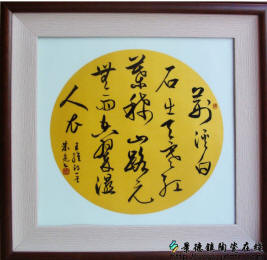 荆溪白
石出天寒红
葉稀山路元
無雨空翠湿
人衣
王维诗一首
景德镇陶瓷在线